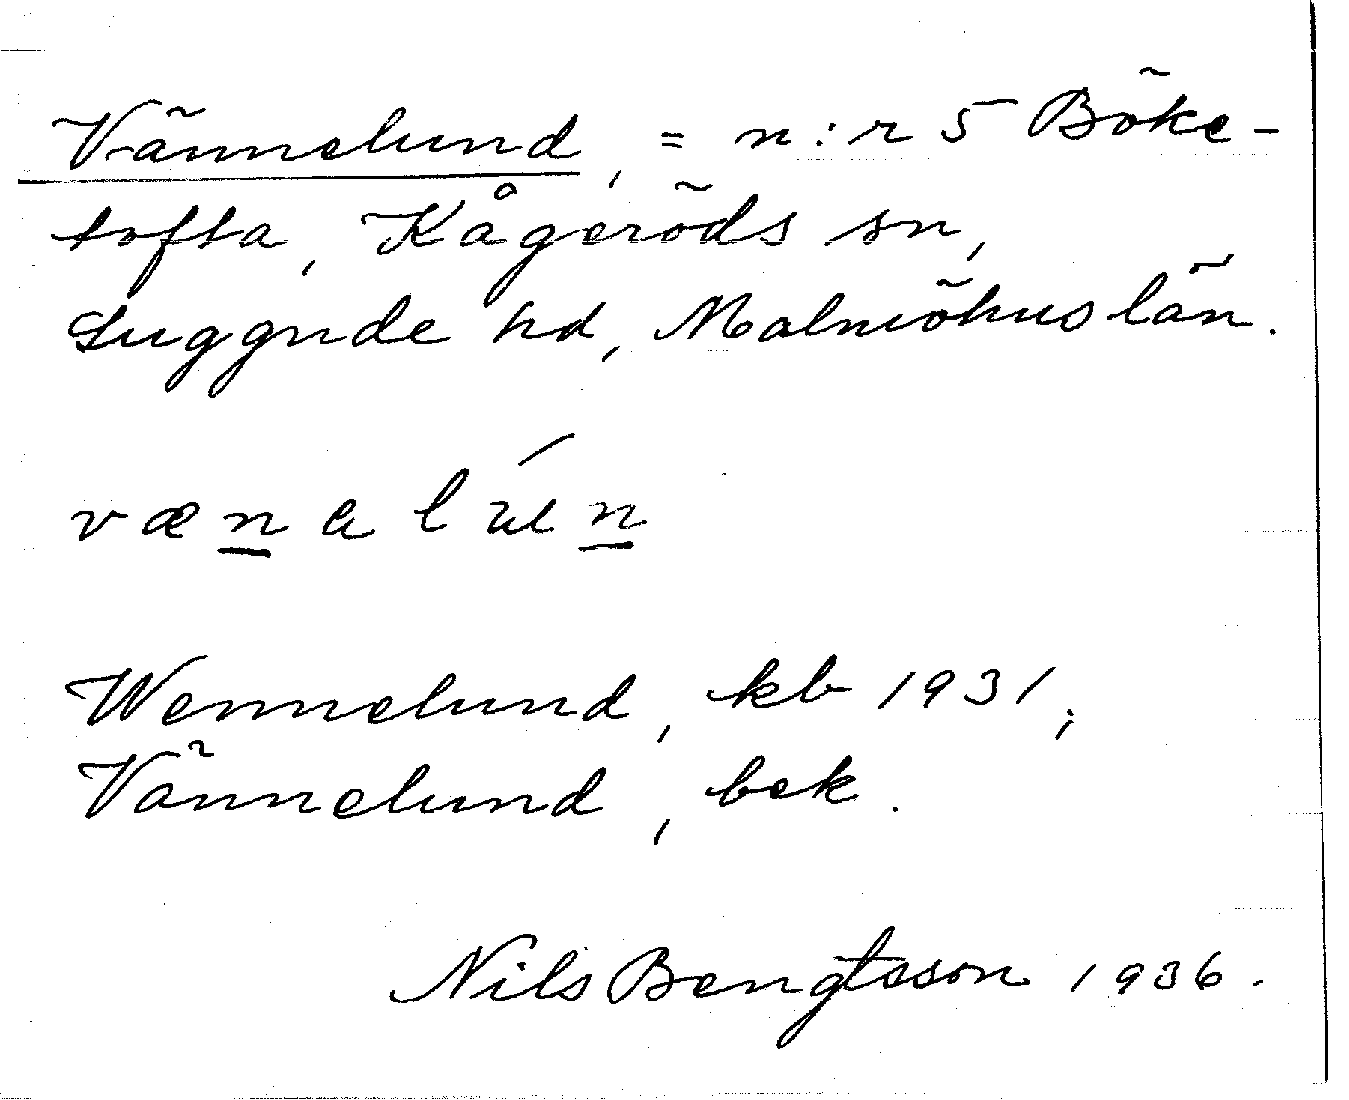 Vännelund, = n:r 5 Böke-
tofta, Kågeröds sn,
Luggude hd, Malmöhus län.
væn̲alún̲
Wennelund, kb 1931;
Vännelund, bek.
Nils Bengtsson 1936.